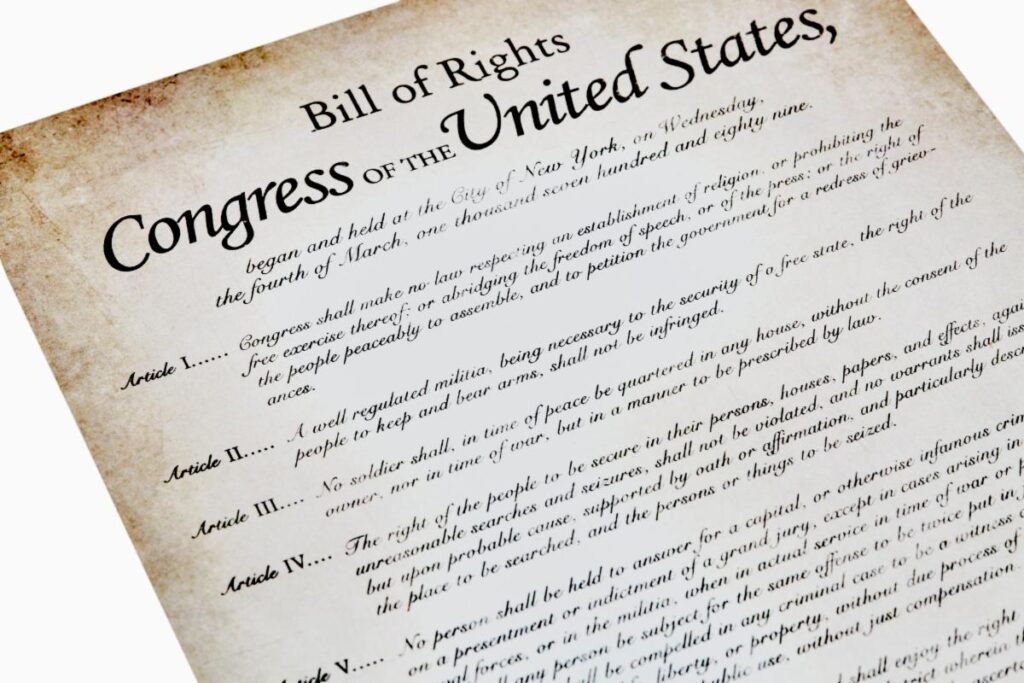 Bill of Rights
Congress OF THE United States,
began and held at the City of New York, on Wednesday,
the fourth of March, one thousand seven hundred and eighty nine.
Article I...... Congress shall make no law respecting an establishment of religion, or prohibiting the
free exercise thereof; or abridging the freedom of speech, or of the press; or the right of
the people peaceably to assemble, and to petition the government for a redress of griev-
ances.
Article II..... A well regulated militia, being necessary to the security of a free state, the right of the
people to keep and bear arms, shall not be infringed.
Article III.... No soldier shall, in time of peace be quartered in any house, without the consent of the
owner, nor in time of war, but in a manner to be prescribed by law.
Article IV.... The right of the people to be secure in their persons, houses, papers, and effects, agai
unreasonable searches and seizures, shall not be violated, and no warrants shall iss
but upon probable cause, supported by oath or affirmation, and particularly descr
the place to be searched, and the persons or things to be seized.
Article V..... No person shall be held to answer for a capital, or otherwise infamous crim
on a presentment or indictment of a grand jury, except in cases arising in
forces, or in the militia, when in actual service in time of war or p
any person be subject for the same offense to be twice put in
be compelled in any criminal case to be a witness
liberty, or property, without due process of
use, without just compensation.
shall enjoy the right
district wherein th